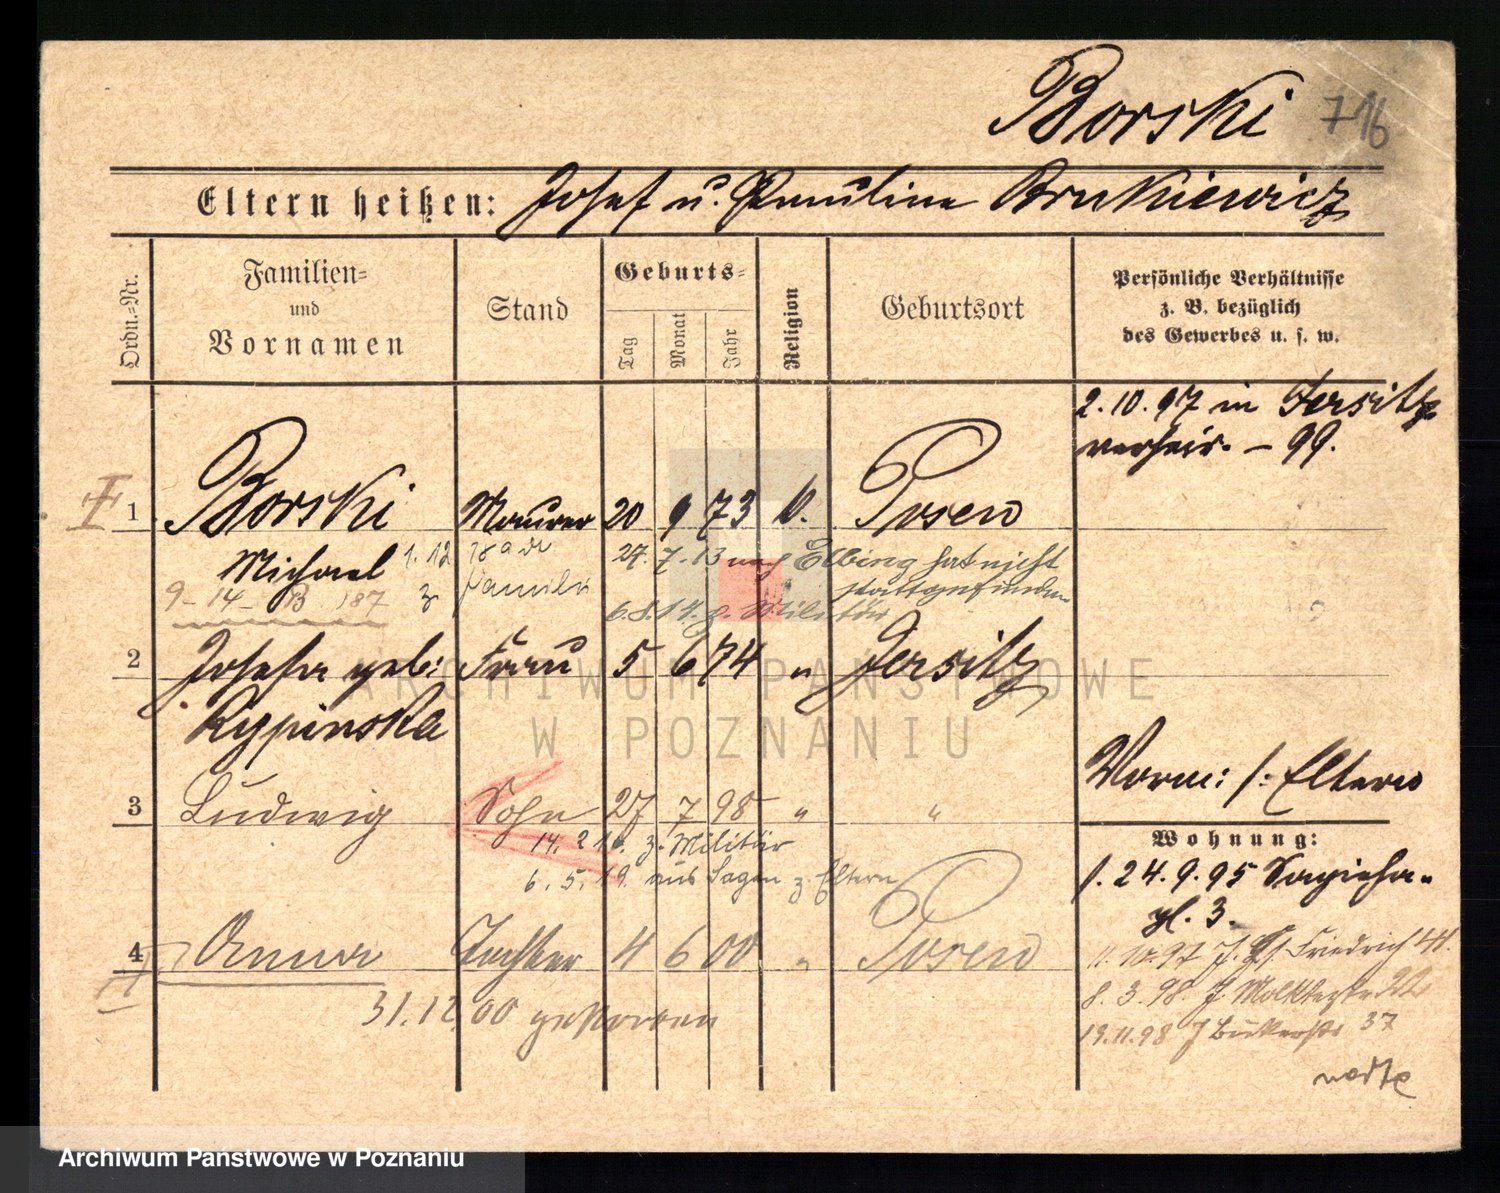 Borski 716
Eltern heißen: Josef u. Pauline Brukiewicz
Ordn.-Nr.
Familien-
und
Vornamen
Stand
Geburts-
Tag
Monat
Jahr
Religion
Geburtsort
Persönliche Verhältnisse
z. B. bezüglich
des Gewerbes u. s. w.
2.10.97 in Jersitz
verheir. - 99.
I
1 Borski Maurer 20 9 73 k. Posen
Michael 1.12
z. Familie
27.7.13 nach Elbing hat nicht
stattgefunden
9-14-13 187
6.8.14 z. Militär
2 Josefa geb: Frau 5 6 74 " Jersitz
Rypinska
Vorm: f: Eltern
3 Ludwig Sohn 27 7 98 " "
14.2.16. z. Militär
6.5.19. aus Sagan z. Eltern
Wohnung:
f. 24.9.95 Sapieha-
pl. 3.
4 Anna Tochter 4 6 00 " Posen
II
31.12.00 gestorben
11.10.97 J. Friedrich
8.3.98 J Moltkestr
19.11.98 J 37
ARCHIWUM PAŃSTWOWE
W POZNANIU
Archiwum Państwowe w Poznaniu